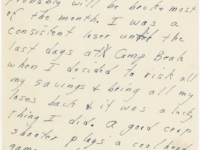 probably will be broke most
of the month. I was a
consistent loser until the
last days at Camp Beale
when I decided to risk all
my savings & bring all my
loses back & it was a lucky
thing I did. A good crap
shooter plays a cool head